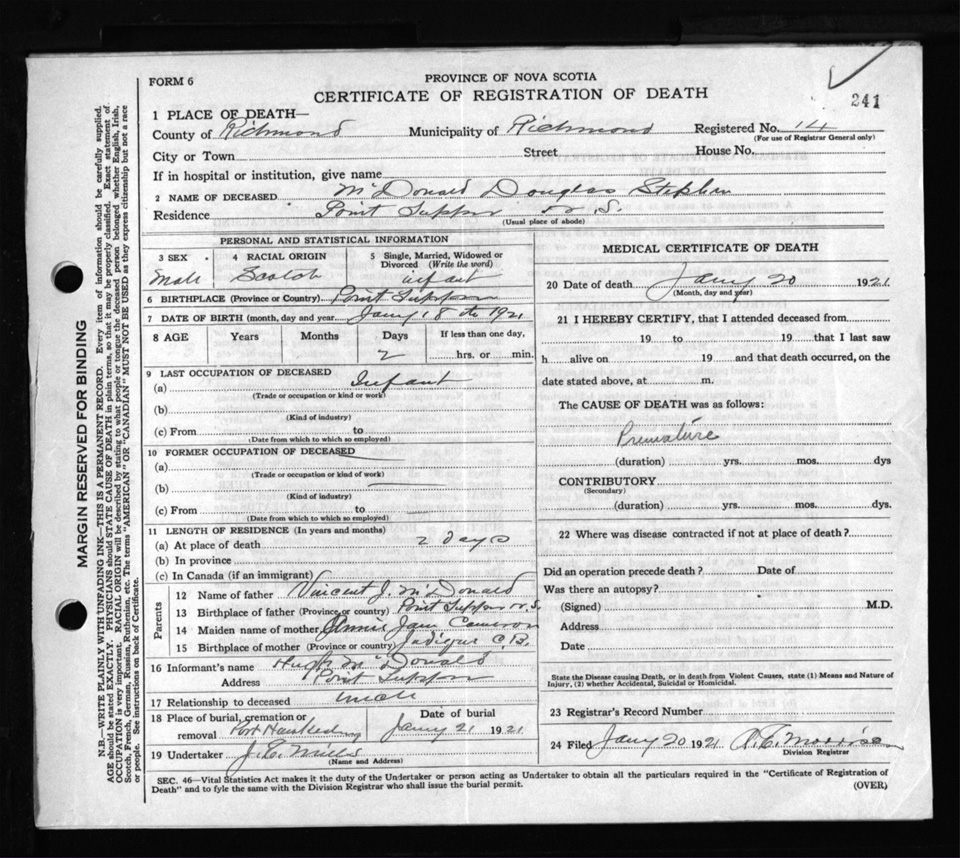 FORM 6
PROVINCE OF NOVA SCOTIA
CERTIFICATE OF REGISTRATION OF DEATH
241
1 PLACE OF DEATH—
County of Richmond Municipality of Richmond Registered No. 14
(For use of Registrar General only)
City or Town Street House No.
If in hospital or institution, give name
2 NAME OF DECEASED McDonald Douglas Stephen
Residence Point Tupper N. S.
(Usual place of abode)
PERSONAL AND STATISTICAL INFORMATION
3 SEX 4 RACIAL ORIGIN 5 Single, Married, Widowed or Divorced (Write the word)
Male Scotch infant
6 BIRTHPLACE (Province or Country) Point Tupper
7 DATE OF BIRTH (month, day and year) Jany 18 th 1921
8 AGE Years Months Days If less than one day,
2 hrs. or min.
9 LAST OCCUPATION OF DECEASED
(a) Infant
(Trade or occupation or kind or work)
(b)
(Kind of industry)
(c) From to
(Date from which to which so employed)
10 FORMER OCCUPATION OF DECEASED
(a)
(Trade or occupation or kind of work)
(b)
(Kind of industry)
(c) From to
(Date from which to which so employed)
11 LENGTH OF RESIDENCE (In years and months)
(a) At place of death 2 days
(b) In province
(c) In Canada (if an immigrant)
Parents
12 Name of father Vincent J. McDonald
13 Birthplace of father (Province or country) Point Tupper N.S.
14 Maiden name of mother Annie Jane Cameron
15 Birthplace of mother (Province or country) Judique C.B.
16 Informant's name Hugh McDonald
Address Point Tupper
17 Relationship to deceased uncle
18 Place of burial, cremation or removal Port Hawkesbury
Date of burial Jany 21 1921
19 Undertaker J. E. Mills
(Name and Address)
MEDICAL CERTIFICATE OF DEATH
20 Date of death Jany 20 1921
(Month, day and year)
21 I HEREBY CERTIFY, that I attended deceased from
19 to 19 that I last saw
h alive on 19 and that death occurred, on the
date stated above, at m.
The CAUSE OF DEATH was as follows:
Premature
(duration) yrs. mos. dys
CONTRIBUTORY
(Secondary)
(duration) yrs. mos. dys.
22 Where was disease contracted if not at place of death?
Did an operation precede death? Date of
Was there an autopsy?
(Signed) M.D.
Address
Date
State the Disease causing Death, or in death from Violent Causes, state (1) Means and Nature of
Injury, (2) whether Accidental, Suicidal or Homicidal.
23 Registrar's Record Number
24 Filed Jany 20 1921
Division Registrar
SEC. 46—Vital Statistics Act makes it the duty of the Undertaker or person acting as Undertaker to obtain all the particulars required in the "Certificate of Registration of
Death" and to fyle the same with the Division Registrar who shall issue the burial permit.
(OVER)
MARGIN RESERVED FOR BINDING
N.B.—WRITE PLAINLY WITH UNFADING INK—THIS IS A PERMANENT RECORD. Every item of information should be carefully supplied.
AGE should be stated EXACTLY. PHYSICIANS should STATE CAUSE OF DEATH in plain terms, so that it may be properly classified. Exact statement of
OCCUPATION is very important. RACIAL ORIGIN will be described by stating to what people or tongue the deceased person belonged whether English, Irish,
Scotch, French, German, Russian, Ruthenian, etc. The terms "AMERICAN" OR "CANADIAN" MUST NOT BE USED as they express citizenship but not a race
or people. See instructions on back of Certificate.